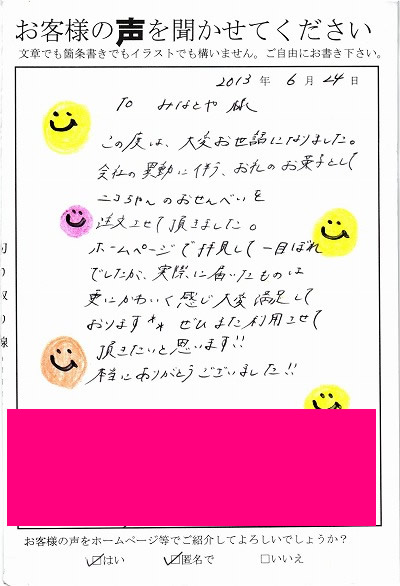 お客様の声を聞かせてください
文章でも箇条書きでもイラストでも構いません。ご自由にお書き下さい。
2013年 6月 24日
To みなとや 様
この度は、大変お世話になりました。
会社の異動に伴う、お礼のお菓子として
ニコちゃんのおせんべいを
注文させて頂きました。
ホームページで拝見して一目ぼれ
でしたが、実際に届いたものは
更にかわいく感じ大変満足して
おります** ぜひまた利用させて
頂きたいと思います!!
本当にありがとうございました!!
お客様の声をホームページ等でご紹介してよろしいでしょうか?
☑はい ☑匿名で □いいえ